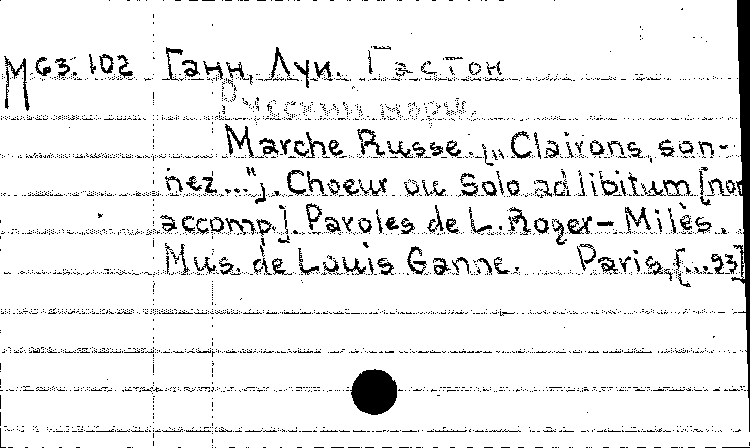 М 63.102 Ганн, Луи. Гастон
Русский марш.
Marche Russe. [„Clairons, son-
nez..."]. Choeur ou Solo ad libitum [non
accomp.]. Paroles de L. Roger-Milès.
Mus. de Louis Ganne. Paris, [...93]